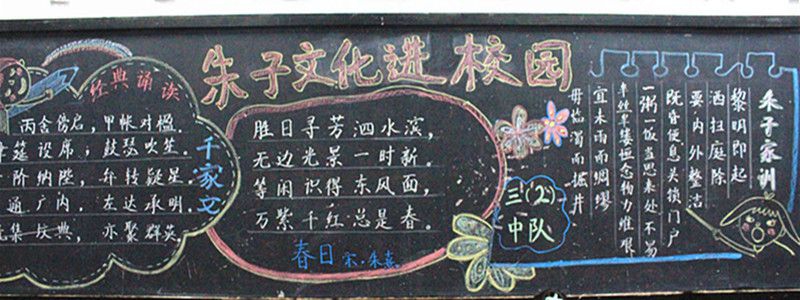 朱子文化进校园
经典诵读
丙舍傍启，甲帐对楹。
筵设席，鼓瑟吹笙。
阶纳陛，弁转疑星。
通广内，左达承明。
集坟典，亦聚群英。
千家文
胜日寻芳泗水滨，
无边光景一时新。
等闲识得东风面，
万紫千红总是春。
春日 宋·朱熹
三(2)
中队
朱子家训
黎明即起
洒扫庭除
要内外整洁
既昏便息关锁门户
一粥一饭当思来处不易
半丝半缕恒念物力维艰
宜未雨而绸缪
毋临渴而掘井